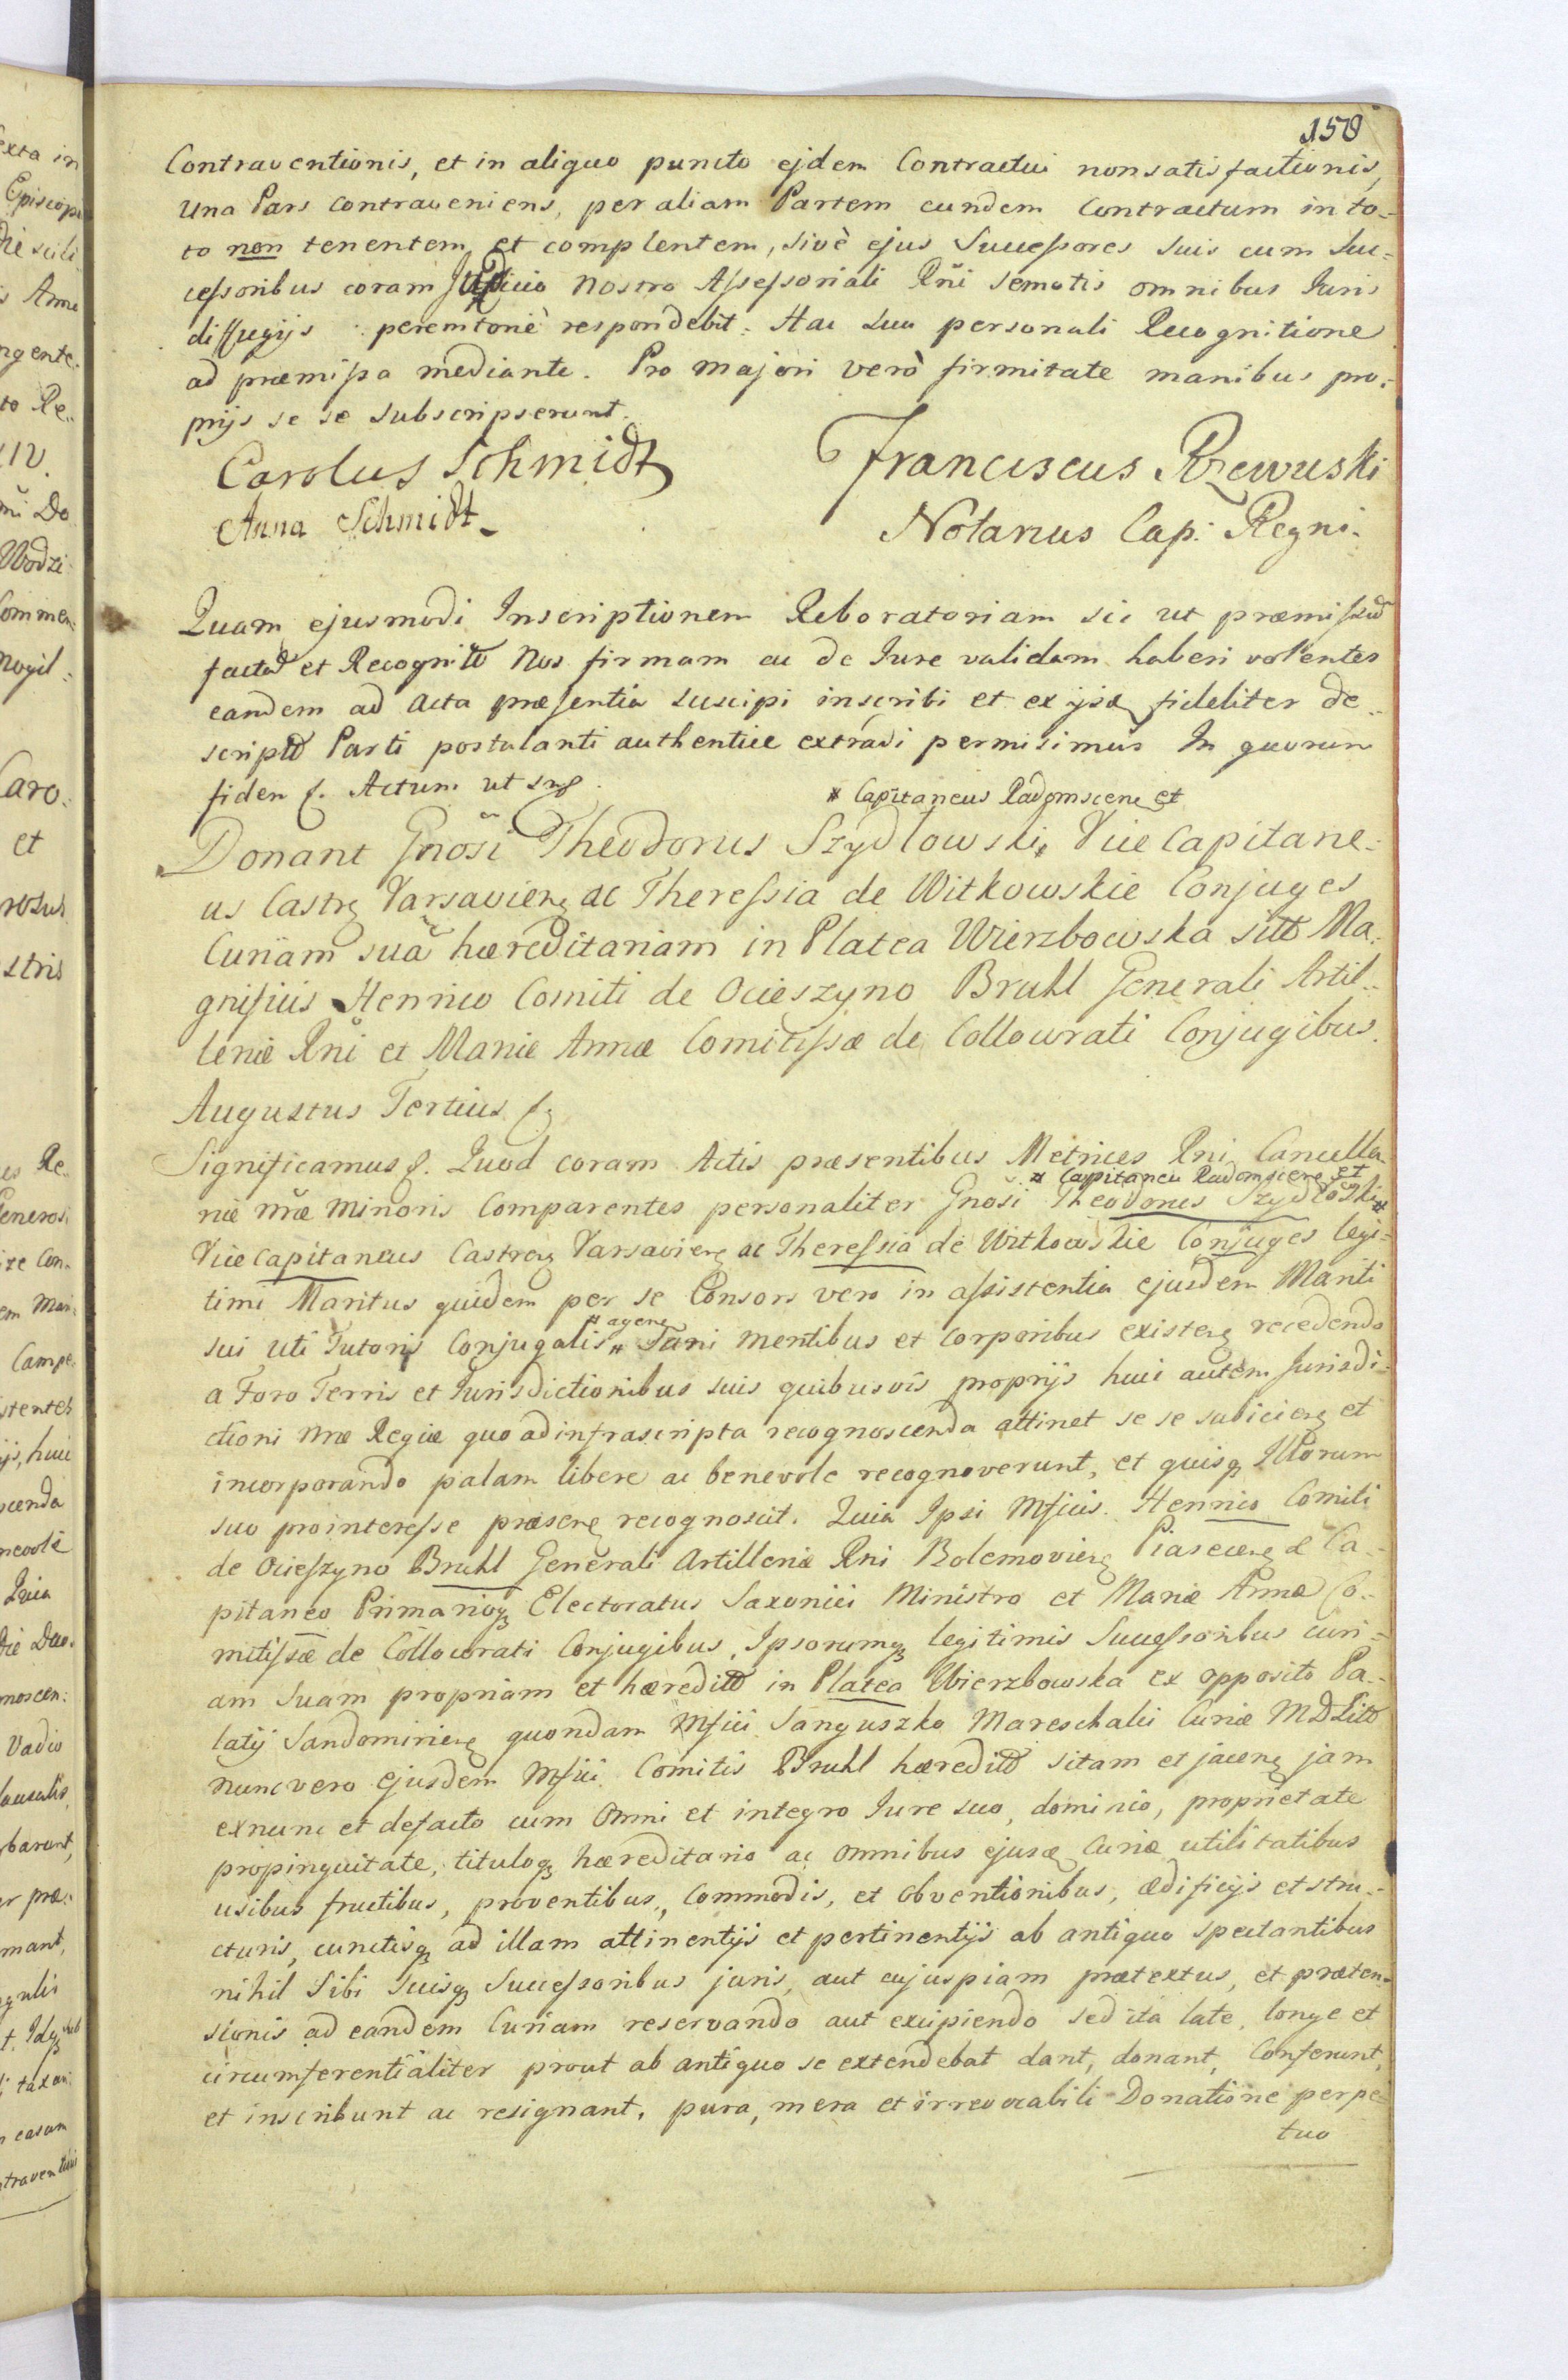 150
Contraventionis, et in aliquo puncto ejdem Contractui nonsatisfactionis,
Una Pars contraveniens, per aliam Partem eundem Contractum in to-
to non tenentem, et complentem, sivè ejus Successores suis cum Suc-
cessoribus coram Judicio Nostro Assessoriali Rñi semotis omnibus Juris
diffugijs peremtoriè respondebit. Hac sua personali Recognitione
ad præmissa mediante. Pro majori verò firmitate manibus pro-
prijs se se subscripserunt.
Carolus Schmidt
Franciscus Rzewuski
Anna Schmidt
Notarius Cap: Regni.
Quam ejusmodi Inscriptionem Roboratoriam sic ut præmissum
factam et Recognitam Nos firmam ac de Jure validam haberi volentes
eandem ad Acta præsentia suscipi inscribi et ex ijsd fideliter de-
scriptam Parti postulanti authentice extradi permisimus In quorum
fidem f. Actum ut sup.
* Capitaneus Radomscen et
Donant Gnõsi Theodorus Szydlowski * Vice Capitane-
us Castren Varsavien ac Theressia de Witkowskie Conjuges
Curiam suã hæreditariam in Platea Wierzbowska sitam Ma-
gnificis Henrico Comiti de Ocieszyno Bruhl Generali Artil-
leriæ Rñi et Mariæ Annæ Comitissæ de Collowrati Conjugibus.
Augustus Tertius f.
Significamus f. Quod coram Actis præsentibus Metrices Rni Cancella-
* Capitaneu Radomscen et
riæ Nræ Minoris Comparentes personaliter Gnõsi Theodorus Szydłoski *
Vice Capitaneus Castren Varsavien ac Theressia de Witkowskie Conjuges legi-
timi Maritus quidem per se Consors vero in assistentia ejusdem Mariti
# agen
sui uti Tutoris Conjugalis # Sani mentibus et corporibus existen recedendo
a Foro Terris et Jurisdictionibus suis quibusvis proprijs huic autem Jurisdi-
ctioni Nræ Regiæ quo ad infrascripta recognoscenda attinet se se subicien et
incorporando palam libere ac benevole recognoverunt, et quisq Illorum
suo prointeresse præsen recognoscit. Quia Ipsi Mficis. Henrico Comiti
de Ocieszyno Bruhl Generali Artilleriæ Rni Bolemovien Piasecen & Ca-
pitaneo Primarioq Electoratus Saxonici Ministro et Mariæ Annæ Co-
mitissæ de Collowrati Conjugibus, Ipsorumq legitimis Successoribus curi-
am Suam propriam et hæreditam in Platea Wierzbowska ex opposito Pa-
latij Sandomirien quondam Mfici Sanguszko Mareschalci Curiæ M D Litt
nunc vero ejusdem Mfici Comitis Bruhl hæreditt sitam et jacen jam
exnunc et defacto cum Omni et integro Jure suo, dominio, proprietate
propinquitate, tituloq hæreditario ac omnibus ejusd Curiæ utilitatibus
usibus fructibus, proventibus, Commodis, et obventionibus, ædificijs et stru-
cturis, cunctisq ad illam attinentijs et pertinentijs ab antiquo spectantibus
nihil Sibi suisq Successoribus juris, aut cujuspiam prætextus, et præten-
sionis ad eandem Curiam reservando aut excipiendo sed ita late, longe et
circumferentialiter prout ab antiquo se extendebat dant, donant, Conferunt,
et inscribunt ac resignant, pura, mera et irrevocabili Donatione perpe-
tuo